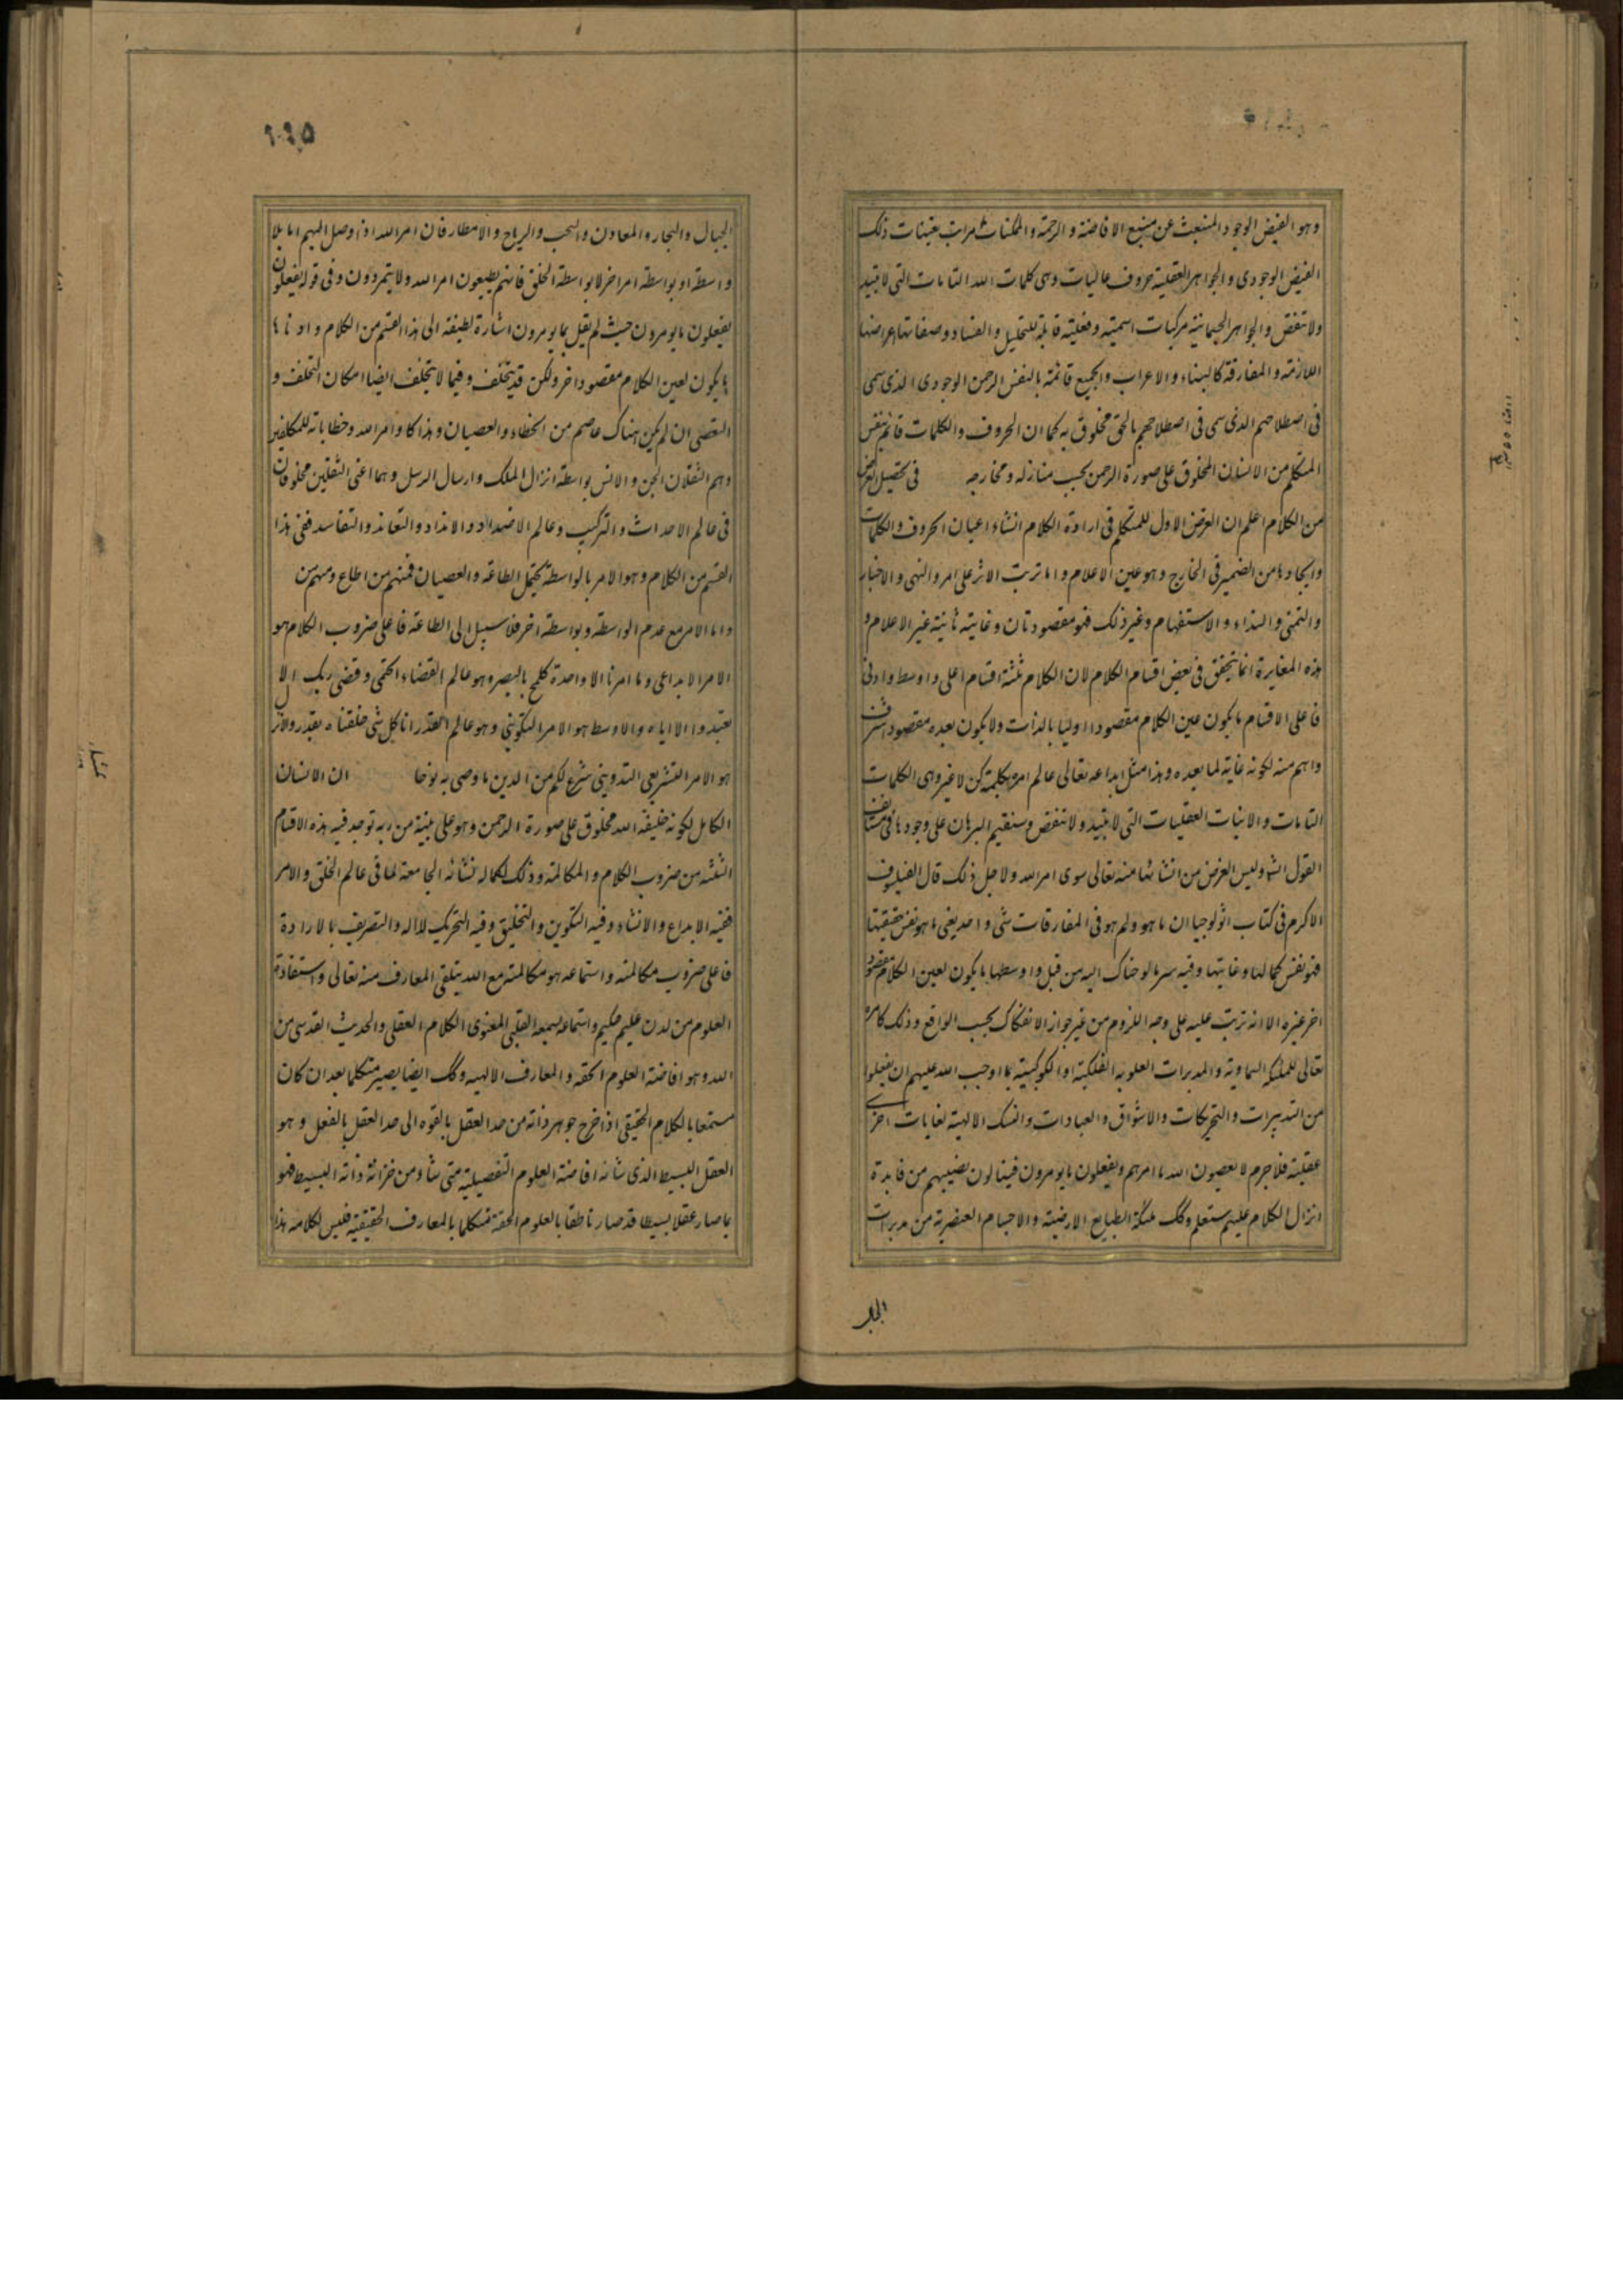 وهو الفيض الوجود المنبعث عن منبع الافاضة و الرحمة و الممكنات مراتب تعينات ذلك
الفيض الوجودى و الجواهر العقلية حروف عاليات وهى كلمات الله التامات التى لا تبيد
ولا تنقص و الجواهر الجسمانية مركبات اسمية وفعلية قابلة للتحليل و الفساد وصفاتها اعراضها
اللازمة و المفارقة كالبناء و الاعراب و الجميع قائمة بالنفس الرحمن الوجودى الذى سمى
فى اصطلاحهم الذى سمى فى اصطلاحهم بالحق مخلوق به كما ان الحروف و الكلمات قائم بنفس
المتكلم من الانسان المخلوق على صورة الرحمن بحسب منازله ومخارجه فى تحصيل الغرض
من الكلام اعلم ان الغرض الاول للمتكلم فى ارادة الكلام انشاء اعيان الحروف و الكلمات
وايجادها من الضمير فى الخارج وهو عين الاعلام و اما ترتب الاثر على امر و النهى و الاخبار
والتمنى و النداء و الاستفهام وغير ذلك فهو مقصود ثان وغاية ثانية غير الاعلام و
هذه المغايرة انما يتحقق فى بعض اقسام الكلام لان الكلام ثلثة اقسام اعلى و اوسط و ادنى
فاعلى الاقسام ما يكون عين الكلام مقصودا اوليا بالذات ولا يكون بعده مقصود اشرف
واهم منه لكونه غاية لما بعده وهذا مثل ابداعه تعالى عالم امره بكلمة كن لا غير وهى الكلمات
التامات و الانيات العقليات التى لا تبيد ولا تنقص وسنقيم البرهان على وجودها فى مستأنف
القول انش وليس الغرض من انشائها منه تعالى سوى امر الله ولاجل ذلك قال الفيلسوف
الاكرم فى كتاب اثولوجيا ان ما هو ولم هو فى المفارقات شى واحد يعنى ما هو نفس حقيقتها
فهو نفس كمالها وغايتها وفيه سر ما لوحناك اليه من قبل و اوسطها ما يكون لعين الكلام مقصود
اخر غيره الا انه ترتب عليه على وجه اللزوم من غير جواز الانفكاك بحسب الواقع وذلك كامره
تعالى للملئكة السماوية و المدبرات العلوية الفلكية او الكوكبية بما اوجب الله عليهم ان يفعلوا
من التدبيرات و التحريكات و الاشواق و العبادات و النسك الالهية لغايات اخرى
عقلية فلا جرم لا يعصون الله ما امرهم ويفعلون ما يومرون فينالون نصيبهم من فايدة
انزال الكلام عليهم ستعلم وكك ملئكة الطبايع الارضية و الاجسام العنصرية من مدبرات
الجبال
٢٠٥
الجبال والبحار و المعادن و السحب و الرياح و الامطار فان امر الله اذا وصل اليهم اما بلا
واسطة او بواسطة امر اخر لا بواسطة الخلق فانهم يطيعون امر الله ولا يتمردون وفى قوله يفعلون
يفعلون ما يومرون حيث لم يقل بما يومرون اشارة لطيفة الى هذا القسم من الكلام و ادناها
ما يكون لعين الكلام مقصود اخر ولكن قد يتخلف وفيما لا يتخلف ايضا امكان التخلف و
التعصى ان لم يكن هناك عاصم من الخطاء و العصيان وهذا كاوامر الله وخطاباته للمكلفين
وهم الثقلان الجن و الانس بواسطة انزال الملك و ارسال الرسل وهما اعنى الثقلين مخلوقان
فى عالم الاحداث و التركيب وعالم الاضداد و الانداد و التعاند و التفاسد ففى هذا
القسم من الكلام وهو الامر بالواسطة يحتمل الطاعة و العصيان فمنهم من اطاع ومنهم من
واما الامر مع عدم الواسطة وبواسطة اخر فلا سبيل الى الطاعة فاعلى ضروب الكلام هو
الامر الابداعى وما امرنا الا واحدة كلمح بالبصر وهو عالم القضاء الحتمى وقضى ربك ان لا
تعبدوا الا اياه و الاوسط هو الامر التكوينى وهو عالم القدر انا كل شى خلقناه بقدر والانزل
هو الامر التشريعى التدوينى شرع لكم من الدين ما وصى به نوحا ان الانسان
الكامل لكونه خليفة الله مخلوق على صورة الرحمن وهو على بينة من ربه توجد فيه هذه الاقسام
الثلثة من ضروب الكلام و المكالمة وذلك لكماله نشائه الجامعة لما فى عالم الخلق و الامر
ففيه الابداع و الانشاء وفيه التكوين و التخليق وفيه التحريك لاالة و التصريف بالارادة
فاعلى ضروب مكالمته و استماعه هو مكالمته مع الله يتلقى المعارف منه تعالى و استفادة
العلوم من لدن عليم حكيم و استماعه بسمعه القلبى المعنوى الكلام العقلى والحديث القدسى من
الله وهو افاضة العلوم الحقة و المعارف الالهية وكك ايضا يصير متكلما بعد ان كان
مستمعا بالكلام الحقيقى اذا خرج جوهر ذاته من حد العقل بالقوه الى حد العقل بالفعل وهو
العقل البسيط الذى شانه افاضة العلوم التفصيلية متى شاء من خزانة ذاته البسيط فهو
بما صار عقلا بسيطا قد صار ناطقا بالعلوم الحقة متكلما بالمعارف الحقيقية فليس لكلامه هذا